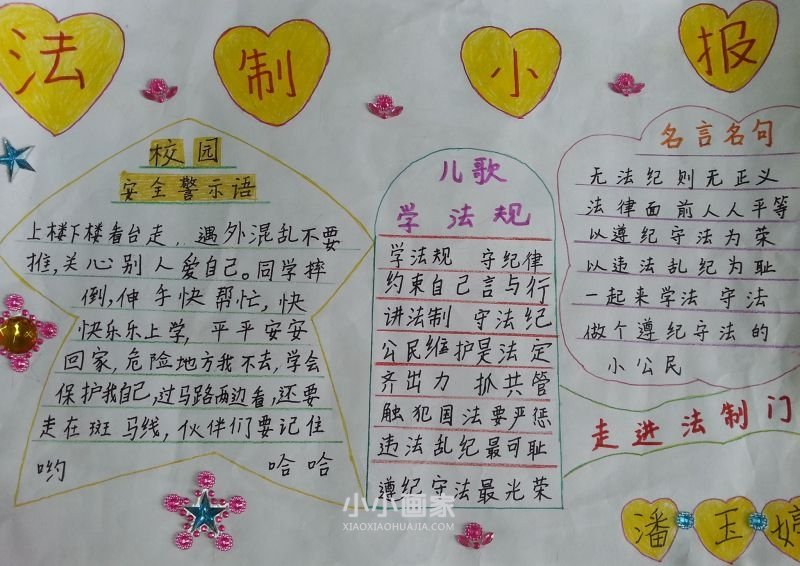 法制小报
校园
安全警示语
上楼下楼看台走,遇外混乱不要
推,关心别人爱自己。同学摔
倒,伸手快帮忙,快
快乐乐上学,平平安安
回家,危险地方我不去,学会
保护我自己,过马路两边看,还要
走在斑马线,伙伴们要记住
哟 哈哈
儿歌
学法规
学法规 守纪律
约束自己言与行
讲法制 守法纪
公民维护是法定
齐出力 抓共管
触犯国法要严惩
违法乱纪最可耻
遵纪守法最光荣
名言名句
无法纪则无正义
法律面前人人平等
以遵纪守法为荣
以违法乱纪为耻
一起来学法守法
做个遵纪守法的
小公民
走进法制门
潘玉婷
小小画家
XIAOXIAOHUAJIA.COM